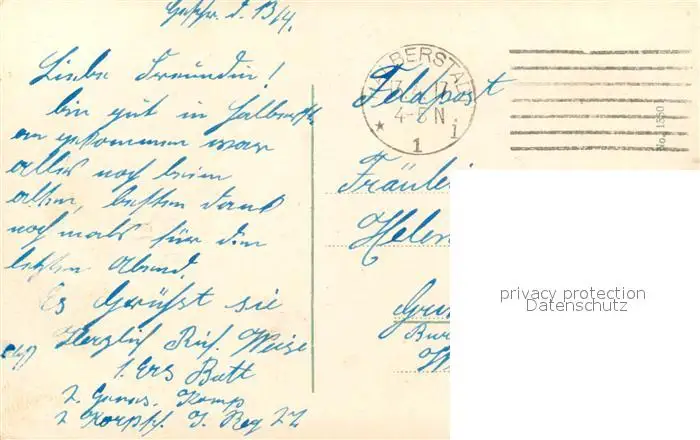 d. 13/4.
Liebe Freundin!
bin gut in Halberst.
an gekommen war
alles noch beim
alten, besten dank
noch mals für den
letzten Abend.
Es Grüßt sie
Herzlich Weise
1. Ers Batl
2. Genes. Komp
J. Reg 27
HALBERSTADT
4-5 N.
* 1 i
Feldpost
Fräulei
Helen
No. 1550
privacy protection
Datenschutz